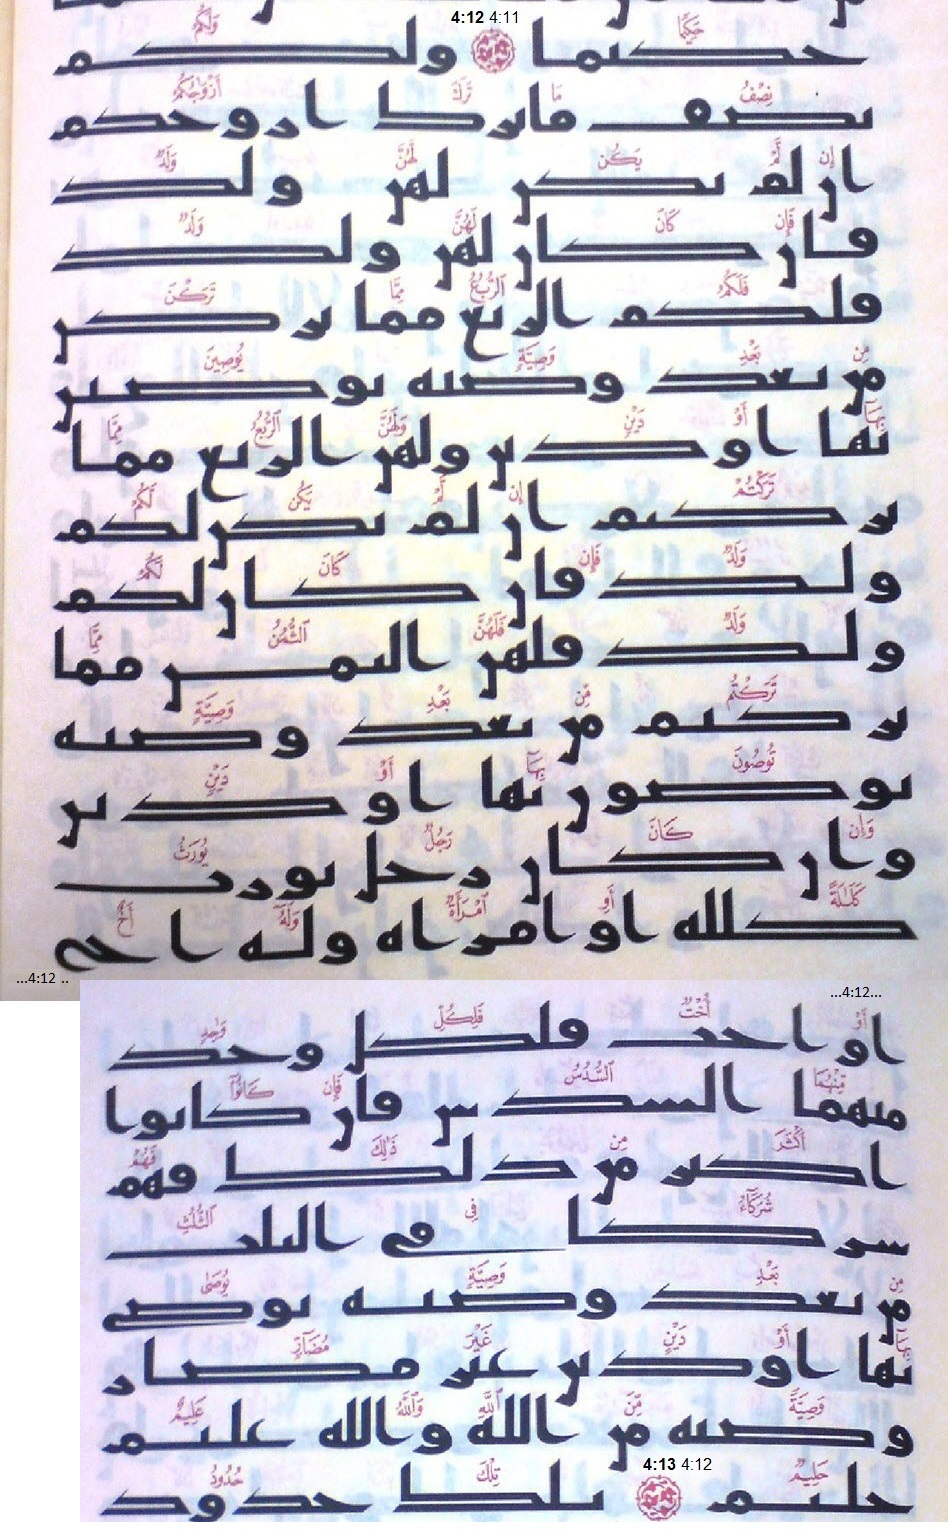 4:12 4:11
حَكِيمًا وَلَكُمْ
حكيما ولكم
نِصْفُ مَا تَرَكَ أَزْوَٰجُكُمْ
نصف ما ترك ازوجكم
إِن لَّمْ يَكُن لَّهُنَّ وَلَدٌ
ان لم يكن لهن ولد
فَإِن كَانَ لَهُنَّ وَلَدٌ
فان كان لهن ولد
فَلَكُمُ ٱلرُّبُعُ مِمَّا تَرَكْنَ
فلكم الربع مما تركن
مِن بَعْدِ وَصِيَّةٍ يُوصِينَ
من بعد وصيه يوصين
بِهَآ أَوْ دَيْنٍ وَلَهُنَّ ٱلرُّبُعُ مِمَّا
بها او دين ولهن الربع مما
تَرَكْتُمْ إِن لَّمْ يَكُن لَّكُمْ
تركتم ان لم يكن لكم
وَلَدٌ فَإِن كَانَ لَكُمْ
ولد فان كان لكم
وَلَدٌ فَلَهُنَّ ٱلثُّمُنُ مِمَّا
ولد فلهن الثمن مما
تَرَكْتُم مِّن بَعْدِ وَصِيَّةٍ
تركتم من بعد وصيه
تُوصُونَ بِهَآ أَوْ دَيْنٍ
توصون بها او دين
وَإِن كَانَ رَجُلٌ يُورَثُ
وان كان رجل يورث
كَلَٰلَةً أَوِ ٱمْرَأَةٌ وَلَهُۥٓ أَخٌ
كلله او امراه وله اخ
...4:12 ..
...4:12...
أَوْ أُخْتٌ فَلِكُلِّ وَٰحِدٍ
او اخت فلكل وحد
مِّنْهُمَا ٱلسُّدُسُ فَإِن كَانُوٓا۟
منهما السدس فان كانوا
أَكْثَرَ مِن ذَٰلِكَ فَهُمْ
اكثر من ذلك فهم
شُرَكَآءُ فِى ٱلثُّلُثِ
شركا فى الثلث
مِن بَعْدِ وَصِيَّةٍ يُوصَىٰ
من بعد وصيه يوصى
بِهَآ أَوْ دَيْنٍ غَيْرَ مُضَآرٍّ
بها او دين غير مضار
وَصِيَّةً مِّنَ ٱللَّهِ وَٱللَّهُ عَلِيمٌ
وصيه من الله والله عليم
4:13 4:12
حَلِيمٌ تِلْكَ حُدُودُ
حليم تلك حدود